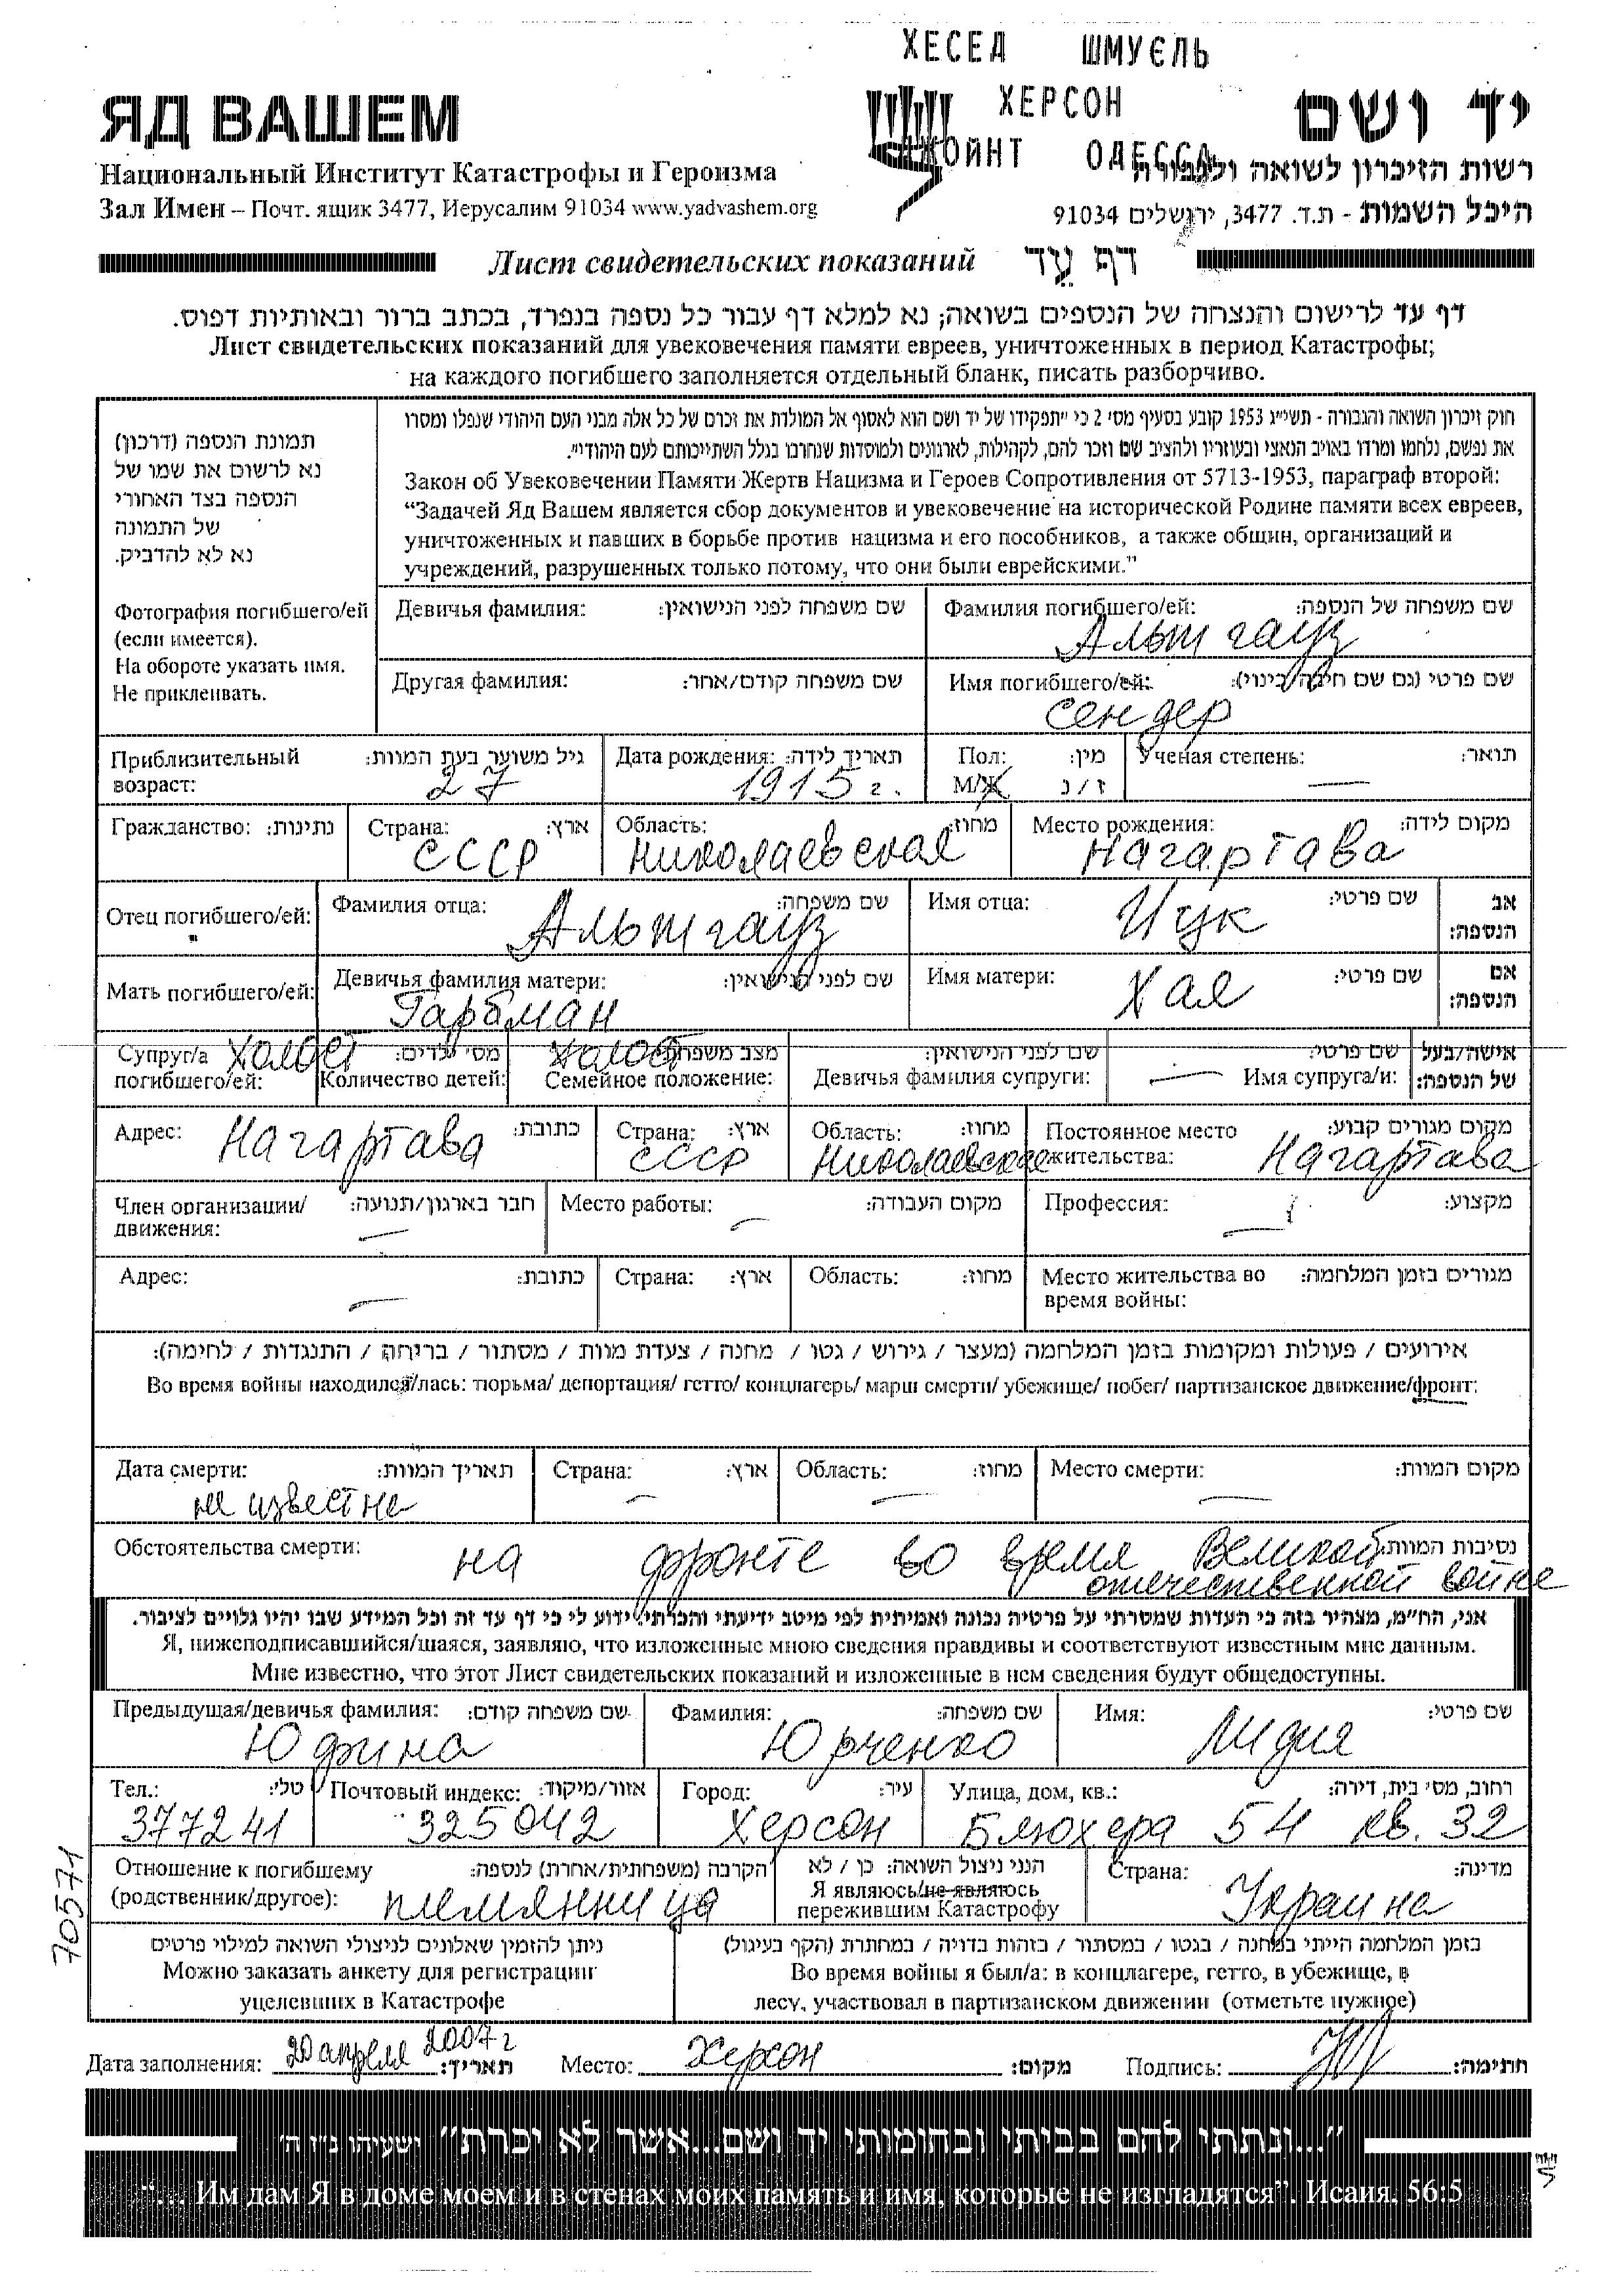 ХЕСЕД ШМУЄЛЬ
ХЕРСОН
ДЖОЙНТ ОДЕССА
ЯД ВАШЕМ
יד ושם
Национальный Институт Катастрофы и Героизма
רשות הזיכרון לשואה ולגבורה
Зал Имен – Почт. ящик 3477, Иерусалим 91034 www.yadvashem.org
היכל השמות - ת.ד. 3477, ירושלים 91034
Лист свидетельских показаний דף עֵד
דף עד לרישום והנצחה של הנספים בשואה; נא למלא דף עבור כל נספה בנפרד, בכתב ברור ובאותיות דפוס.
Лист свидетельских показаний для увековечения памяти евреев, уничтоженных в период Катастрофы;
на каждого погибшего заполняется отдельный бланк, писать разборчиво.
תמונת הנספה (דרכון)
נא לרשום את שמו של
הנספה בצד האחורי
של התמונה
נא לא להדביק.
Фотография погибшего/ей
(если имеется).
На обороте указать имя.
Не приклеивать.
חוק זיכרון השואה והגבורה - תשי״ג 1953 קובע בסעיף מס' 2 כי ״תפקידו של יד ושם הוא לאסוף אל המולדת את זכרם של כל אלה מבני העם היהודי שנפלו ומסרו
את נפשם, נלחמו ומרדו באויב הנאצי ובעוזריו ולהציב שם וזכר להם, לקהילות, לארגונים ולמוסדות שנחרבו בגלל השתייכותם לעם היהודי״.
Закон об Увековечении Памяти Жертв Нацизма и Героев Сопротивления от 5713-1953, параграф второй:
“Задачей Яд Вашем является сбор документов и увековечение на исторической Родине памяти всех евреев,
уничтоженных и павших в борьбе против нацизма и его пособников, а также общин, организаций и
учреждений, разрушенных только потому, что они были еврейскими.”
Девичья фамилия: שם משפחה לפני הנישואין: Фамилия погибшего/ей: שם משפחה של הנספה:
Альтгауз
Другая фамилия: שם משפחה קודם/אחר: Имя погибшего/ей: שם פרטי (גם שם חיבה/כינוי):
Сендер
Приблизительный возраст: גיל משוער בעת המוות: Дата рождения: תאריך לידה: Пол: מין: Ученая степень: תואר:
27 1915 г. М/Ж ז / נ —
Гражданство: נתינות: Страна: ארץ: Область: מחוז: Место рождения: מקום לידה:
СССР Николаевская Нагартава
Отец погибшего/ей: Фамилия отца: שם משפחה: Имя отца: שם פרטי: אב הנספה:
Альтгауз Ицк
Мать погибшего/ей: Девичья фамилия матери: שם לפני הנישואין: Имя матери: שם פרטי: אם הנספה:
Гарбман Хая
Супруг/а погибшего/ей: Холост מס' ילדים: Количество детей: холост מצב משפחתי: Семейное положение: שם לפני הנישואין: Девичья фамилия супруги: — שם פרטי: Имя супруга/и: אישה/בעל של הנספה:
Адрес: כתובת: Страна: ארץ: Область: מחוז: Постоянное место жительства: מקום מגורים קבוע:
Нагартава СССР Николаевская Нагартава
Член организации/ движения: חבר בארגון/תנועה: Место работы: מקום העבודה: Профессия: מקצוע:
— — —
Адрес: כתובת: Страна: ארץ: Область: מחוז: Место жительства во время войны: מגורים בזמן המלחמה:
—
אירועים / פעולות ומקומות בזמן המלחמה (מעצר / גירוש / גטו / מחנה / צעדת מוות / מסתור / בריחה / התנגדות / לחימה):
Во время войны находился/лась: тюрьма/ депортация/ гетто/ концлагерь/ марш смерти/ убежище/ побег/ партизанское движение/фронт:
Дата смерти: תאריך המוות: Страна: ארץ: Область: מחוז: Место смерти: מקום המוות:
не известно — — —
Обстоятельства смерти: на фронте во время Великой נסיבות המוות:
отечественной войне
אני, הח״מ, מצהיר בזה כי העדות שמסרתי על פרטיה נכונה ואמיתית לפי מיטב ידיעתי והכרתי. ידוע לי כי דף עד זה וכל המידע שבו יהיו גלויים לציבור.
Я, нижеподписавшийся/шаяся, заявляю, что изложенные мною сведения правдивы и соответствуют известным мне данным.
Мне известно, что этот Лист свидетельских показаний и изложенные в нем сведения будут общедоступны.
Предыдущая/девичья фамилия: שם משפחה קודם: Фамилия: שם משפחה: Имя: שם פרטי:
Юдина Юрченко Лидия
Тел.: טל': Почтовый индекс: אזור/מיקוד: Город: עיר: Улица, дом, кв.: רחוב, מס' בית, דירה:
377241 325042 Херсон Блюхера 54 кв. 32
Отношение к погибшему (родственник/другое): הקרבה (משפחתית/אחרת) לנספה: הנני ניצול השואה: כן / לא Страна: מדינה:
племянница Я являюсь/не являюсь пережившим Катастрофу Украина
ניתן להזמין שאלונים לניצולי השואה למילוי פרטים
Можно заказать анкету для регистрации
уцелевших в Катастрофе
בזמן המלחמה הייתי במחנה / בגטו / במסתור / בזהות בדויה / במחתרת (הקף בעיגול)
Во время войны я был/а: в концлагере, гетто, в убежище, в
лесу, участвовал в партизанском движении (отметьте нужное)
Дата заполнения: 20 апреля 2007 г תאריך: Место: Херсон מקום: Подпись: חתימה:
70571
״...ונתתי להם בביתי ובחומותי יד ושם...אשר לא יכרת״ ישעיהו נ״ו ה'
“... Им дам Я в доме моем и в стенах моих память и имя, которые не изгладятся”. Исаия, 56:5